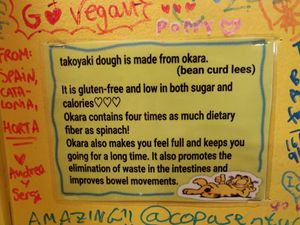 Go vegan!!
FROM:
SPAIN,
CATA-
LONIA,
HORTA
Andrea
y
Sergi
takoyaki dough is made from okara.
(bean curd lees)
It is gluten-free and low in both sugar and
calories♡♡♡
Okara contains four times as much dietary
fiber as spinach!
Okara also makes you feel full and keeps you
going for a long time. It also promotes the
elimination of waste in the intestines and
improves bowel movements.
AMAZING!!